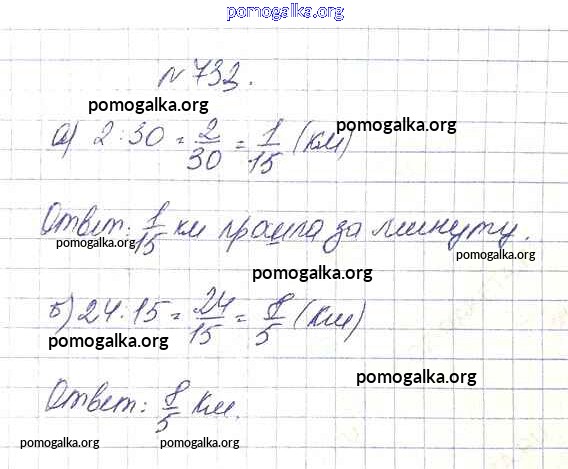 pomogalka.org
№ 733.
pomogalka.org
pomogalka.org
а) 2 : 30 = 2/30 = 1/15 (км)
Ответ: 1/15 км прошла за минуту.
pomogalka.org
pomogalka.org
pomogalka.org
б) 24 : 15 = 24/15 = 8/5 (км)
pomogalka.org
pomogalka.org
Ответ: 8/5 км.
pomogalka.org
pomogalka.org